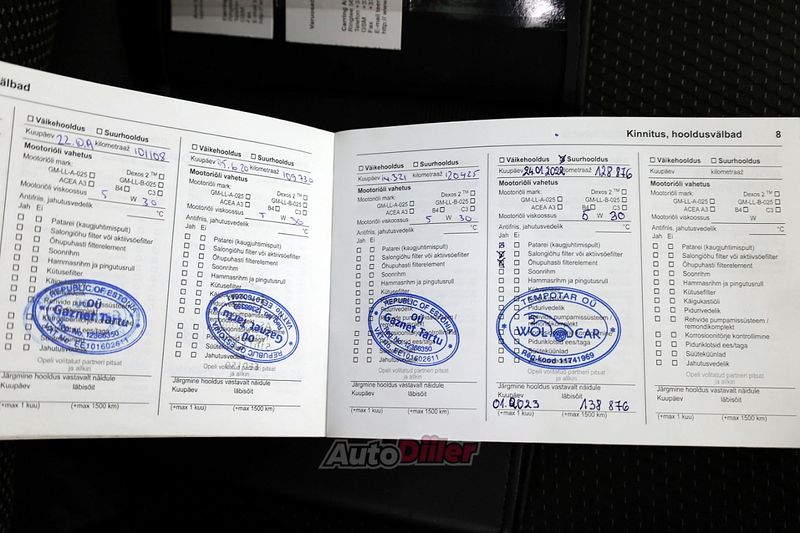 älbad
Kinnitus, hooldusvälbad 8
☐ Väikehooldus ☐ Suurhooldus
Kuupäev kilometraaž 101108
Mootoriõli vahetus
Mootoriõli mark: Dexos 2™ ☐
GM-LL-A-025 ☐ GM-LL-B-025 ☐
ACEA A3 ☐ B4 ☐ C3 ☐
Mootoriõli viskoossus 5 W 30
Antifriis, jahutusvedelik °C
Jah Ei
Patarei (kaugjuhtimispult)
Salongiõhu filter või aktiivsöefilter
Õhupuhasti filterelement
Soonrihm
Hammasrihm ja pingutusrull
Kütusefilter
REPUBLIC OF ESTONIA
OÜ
Gaznet Tartu
EE101602611
Jahutusvedelik
Opeli volitatud partneri pitsat
ja allkiri
Järgmine hooldus vastavalt näidule
Kuupäev läbisõit
(+max 1 kuu) (+max 1500 km)
☐ Väikehooldus ☐ Suurhooldus
Kuupäev kilometraaž 109730
Mootoriõli vahetus
Mootoriõli mark: Dexos 2™ ☐
GM-LL-A-025 ☐ GM-LL-B-025 ☐
ACEA A3 ☐ B4 ☐ C3 ☐
Mootoriõli viskoossus W
Antifriis, jahutusvedelik °C
Jah Ei
Patarei (kaugjuhtimispult)
Salongiõhu filter või aktiivsöefilter
Õhupuhasti filterelement
Soonrihm
Hammasrihm ja pingutusrull
Kütusefilter
REPUBLIC OF ESTONIA
Jahutusvedelik
Opeli volitatud partneri pitsat
ja allkiri
Järgmine hooldus vastavalt näidule
Kuupäev läbisõit
(+max 1 kuu) (+max 1500 km)
☐ Väikehooldus ☐ Suurhooldus
Kuupäev 14.321 kilometraaž 120425
Mootoriõli vahetus
Mootoriõli mark: Dexos 2™ ☐
GM-LL-A-025 ☐ GM-LL-B-025 ☐
ACEA A3 ☐ B4 ☐ C3 ☐
Mootoriõli viskoossus 5 W 30
Antifriis, jahutusvedelik °C
Jah Ei
Patarei (kaugjuhtimispult)
Salongiõhu filter või aktiivsöefilter
Õhupuhasti filterelement
Soonrihm
Hammasrihm ja pingutusrull
Kütusefilter
REPUBLIC OF ESTONIA
OÜ
Gaznet Tartu
EE101602611
Jahutusvedelik
Opeli volitatud partneri pitsat
ja allkiri
Järgmine hooldus vastavalt näidule
Kuupäev läbisõit
(+max 1 kuu) (+max 1500 km)
☐ Väikehooldus ☒ Suurhooldus
Kuupäev 24.01.2022 kilometraaž 128 876
Mootoriõli vahetus
Mootoriõli mark: Dexos 2™ ☐
GM-LL-A-025 ☐ GM-LL-B-025 ☐
ACEA A3 ☐ B4 ☐ C3 ☐
Mootoriõli viskoossus W 30
Antifriis, jahutusvedelik °C
Jah Ei
Patarei (kaugjuhtimispult)
Salongiõhu filter või aktiivsöefilter
Õhupuhasti filterelement
Soonrihm
Hammasrihm ja pingutusrull
Kütusefilter
TEMPOTAR OÜ
CAR
Reg.kood 11741969
Jahutusvedelik
Opeli volitatud partneri pitsat
ja allkiri
Järgmine hooldus vastavalt näidule
Kuupäev läbisõit
01.2023 138 876
(+max 1 kuu) (+max 1500 km)
☐ Väikehooldus ☐ Suurhooldus
Kuupäev kilometraaž
Mootoriõli vahetus
Mootoriõli mark: Dexos 2™ ☐
GM-LL-A-025 ☐ GM-LL-B-025 ☐
ACEA A3 ☐ B4 ☐ C3 ☐
Mootoriõli viskoossus W
Antifriis, jahutusvedelik °C
Jah Ei
Patarei (kaugjuhtimispult)
Salongiõhu filter või aktiivsöefilter
Õhupuhasti filterelement
Soonrihm
Hammasrihm ja pingutusrull
Kütusefilter
Käigukastiõli
Pidurivedelik
Rehvide pumpamissüsteem /
remondikomplekt
Korrosioonitõrje kontrollimine
Piduriklotsid ees/taga
Süüteküünlad
Jahutusvedelik
Opeli volitatud partneri pitsat
ja allkiri
Järgmine hooldus vastavalt näidule
Kuupäev läbisõit
(+max 1 kuu) (+max 1500 km)
AutoDiller